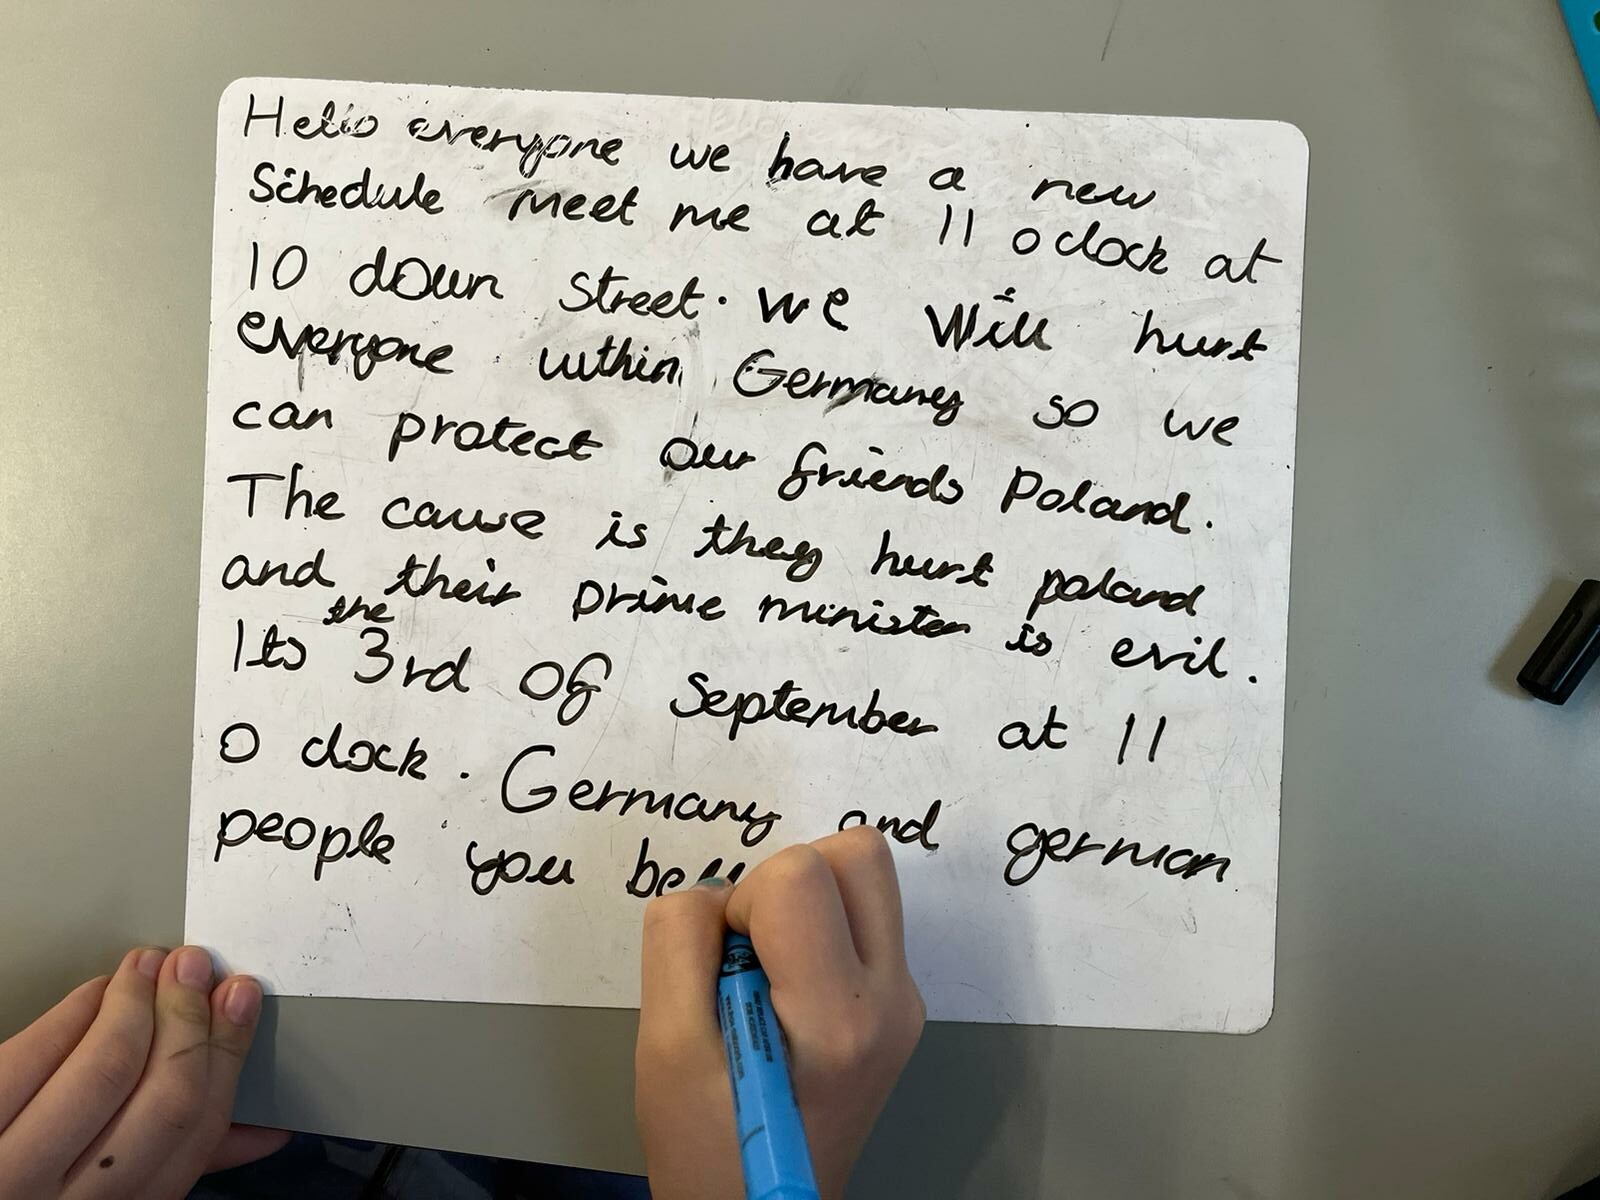 Hello everyone we have a new
Schedule meet me at 11 o clock at
10 down street. we Will hurt
everyone within Germany so we
can protect our friends Poland.
The cause is they hurt poland
and their prime minister is evil.
Its the 3rd of September at 11
o clock. Germany and german
people you